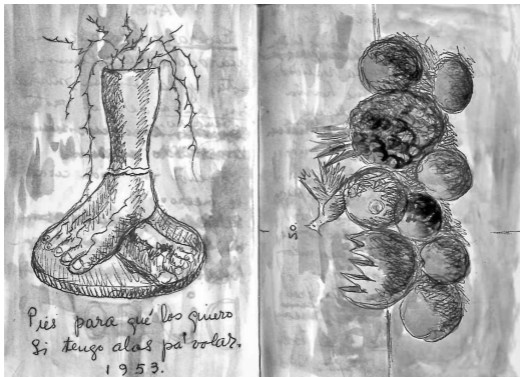 Pies para qué los quiero
Si tengo alas pa' volar.
1953.